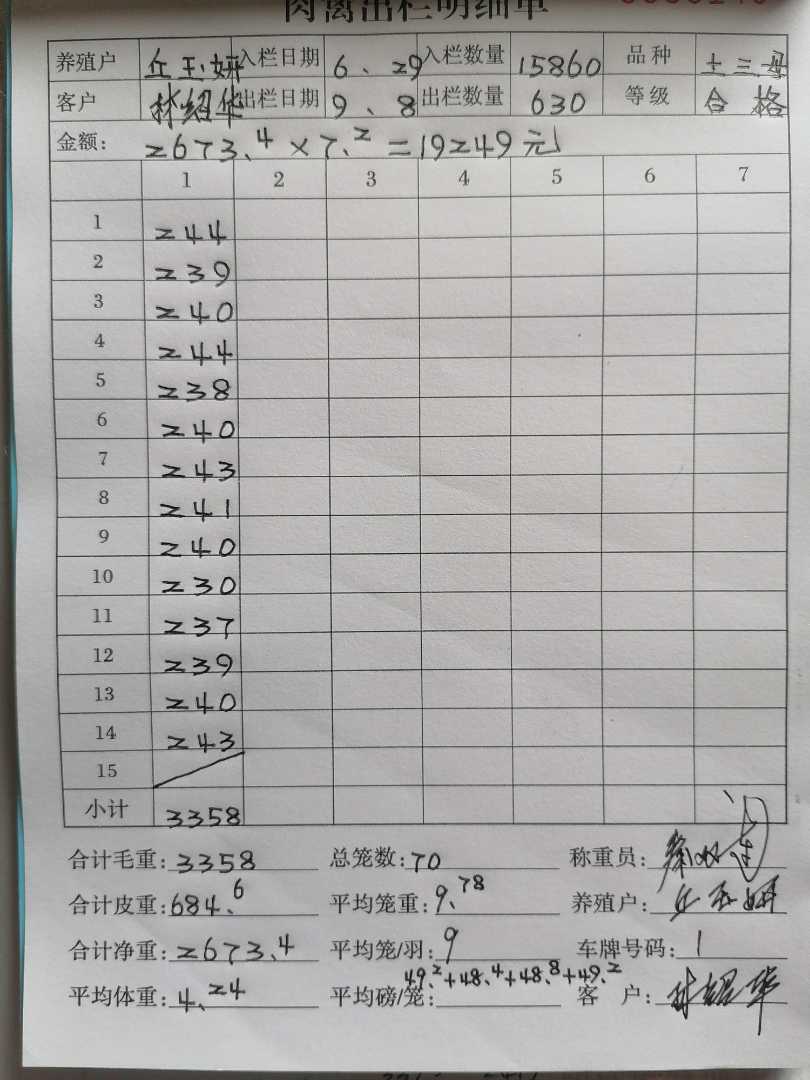 肉禽出栏明细单
养殖户 丘玉妍 入栏日期 6、29 入栏数量 15860 品种 土三母
客户 林绍华 出栏日期 9、8 出栏数量 630 等级 合格
金额: 2673.4×7.2=19249元
1 2 3 4 5 6 7
1 244
2 239
3 240
4 244
5 238
6 240
7 243
8 241
9 240
10 230
11 237
12 239
13 240
14 243
15
小计 3358
合计毛重: 3358 总笼数: 70 称重员:
合计皮重: 684.6 平均笼重: 9.78 养殖户: 丘玉妍
合计净重: 2673.4 平均笼/羽: 9 车牌号码: 1
平均体重: 4.24 平均磅/笼: 49.2+48.4+48.8+49.2 客户: 林绍华